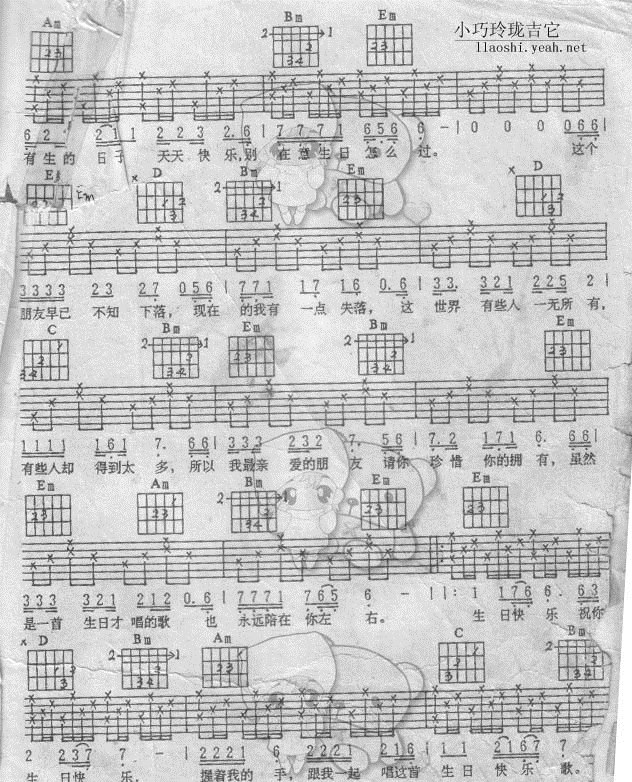 小巧玲珑吉它
llaoshi.yeah.net
Am Bm Em
6 2 · 2 1 1 2 2 3 2 . 6 | 7 7 7 1 6 5 6 6 — | 0 0 0 0 6 6 |
有生的 日子 天天 快乐,别 在意生日 怎么 过。 这个
Em D Bm Em D
3 3 3 3 2 3 2 7 0 5 6 | 7 7 1 1 7 1 6 0 . 6 | 3 3 . 3 2 1 2 2 5 2 |
朋友早已 不知 下落, 现在 的我有 一点 失落, 这 世界 有些人 一无所有,
C Bm Em Bm Em
1 1 1 1 1 6 1 7 . 6 6 | 3 3 3 2 3 2 7 . 5 6 | 7 . 2 1 7 1 6 . 6 6 |
有些人却 得到太 多, 所以 我最亲 爱的朋 友 请你 珍惜 你的拥 有, 虽然
Em Am Bm Em Em
3 3 3 3 2 1 2 1 2 0 . 6 | 7 7 7 7 7 6 5 6 — | | : 1 1 7 6 6 . 6 3 |
是一首 生日才 唱的歌 也 永远陪在 你左 右。 生 日快 乐 祝你
D Bm Am C Bm
2 2 3 7 7 · — | 2 2 2 1 6 . 2 2 2 1 7 6 1 1 | 1 1 2 1 6 7 7 · — |
生 日快 乐, 握着我的 手, 跟我一起 唱这首 生日 快乐 歌。